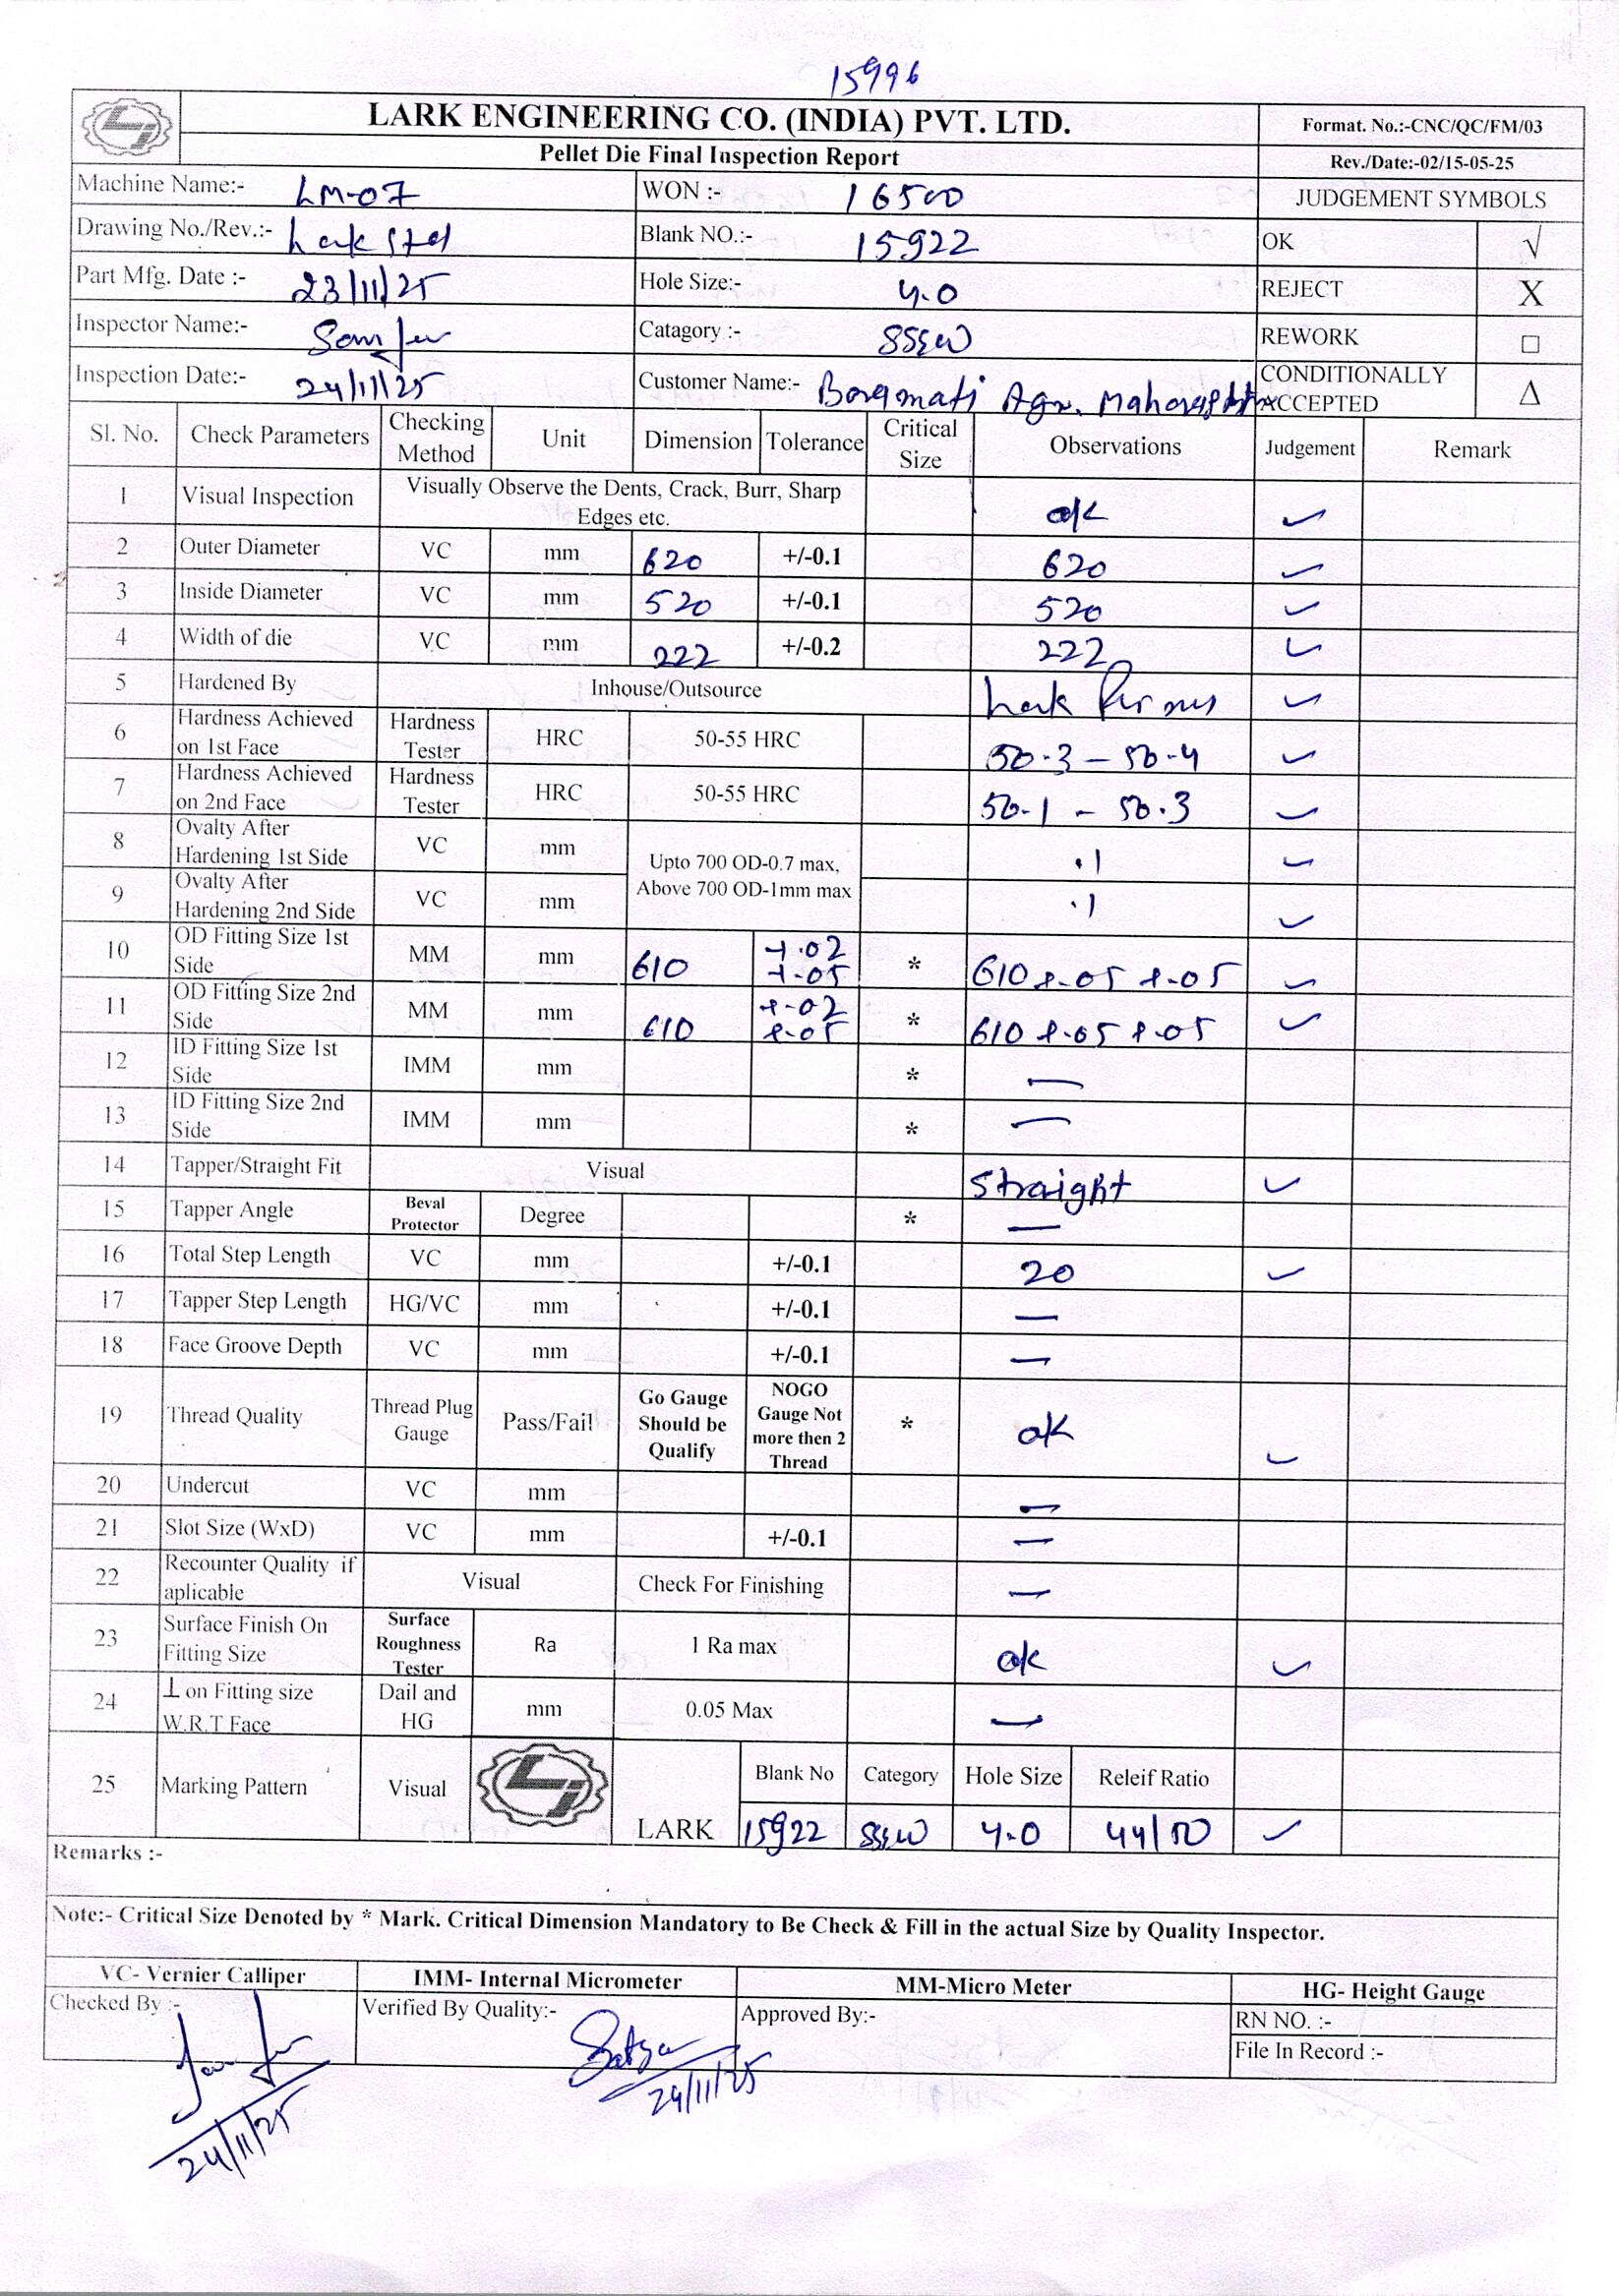 15996
LARK ENGINEERING CO. (INDIA) PVT. LTD. Format. No.:-CNC/QC/FM/03
Pellet Die Final Inspection Report Rev./Date:-02/15-05-25
Machine Name:- LM-07 WON :- 16500 JUDGEMENT SYMBOLS
Drawing No./Rev.:- Lark Std Blank NO.:- 15922 OK √
Part Mfg. Date :- 23/11/25 Hole Size:- 4.0 REJECT X
Inspector Name:- Catagory :- REWORK □
Inspection Date:- 24/11/25 Customer Name:- Baramati Agro. CONDITIONALLY ACCEPTED Δ
Sl. No. Check Parameters Checking Method Unit Dimension Tolerance Critical Size Observations Judgement Remark
1 Visual Inspection Visually Observe the Dents, Crack, Burr, Sharp Edges etc. ok ✓
2 Outer Diameter VC mm 620 +/-0.1 620 ✓
3 Inside Diameter VC mm 520 +/-0.1 520 ✓
4 Width of die VC mm 222 +/-0.2 222 ✓
5 Hardened By Inhouse/Outsource Lark ✓
6 Hardness Achieved on 1st Face Hardness Tester HRC 50-55 HRC 50.3 – 50.4 ✓
7 Hardness Achieved on 2nd Face Hardness Tester HRC 50-55 HRC 50.1 – 50.3 ✓
8 Ovalty After Hardening 1st Side VC mm Upto 700 OD-0.7 max, Above 700 OD-1mm max .1 ✓
9 Ovalty After Hardening 2nd Side VC mm .1 ✓
10 OD Fitting Size 1st Side MM mm 610 +.02 +.05 * 610 +.05 +.05 ✓
11 OD Fitting Size 2nd Side MM mm 610 +.02 +.05 * 610 +.05 +.05 ✓
12 ID Fitting Size 1st Side IMM mm * —
13 ID Fitting Size 2nd Side IMM mm * —
14 Tapper/Straight Fit Visual Straight ✓
15 Tapper Angle Beval Protector Degree * —
16 Total Step Length VC mm +/-0.1 20 ✓
17 Tapper Step Length HG/VC mm +/-0.1 —
18 Face Groove Depth VC mm +/-0.1 —
19 Thread Quality Thread Plug Gauge Pass/Fail Go Gauge Should be Qualify NOGO Gauge Not more then 2 Thread * ok ✓
20 Undercut VC mm —
21 Slot Size (WxD) VC mm +/-0.1 —
22 Recounter Quality if aplicable Visual Check For Finishing —
23 Surface Finish On Fitting Size Surface Roughness Tester Ra 1 Ra max ok ✓
24 ⊥ on Fitting size W.R.T Face Dail and HG mm 0.05 Max —
25 Marking Pattern Visual LARK Blank No Category Hole Size Releif Ratio
15922 4.0 44/50 ✓
Remarks :-
Note:- Critical Size Denoted by * Mark. Critical Dimension Mandatory to Be Check & Fill in the actual Size by Quality Inspector.
VC- Vernier Calliper IMM- Internal Micrometer MM-Micro Meter HG- Height Gauge
Checked By :- Verified By Quality:- Approved By:- RN NO. :-
File In Record :-
24/11/25
24/11/25